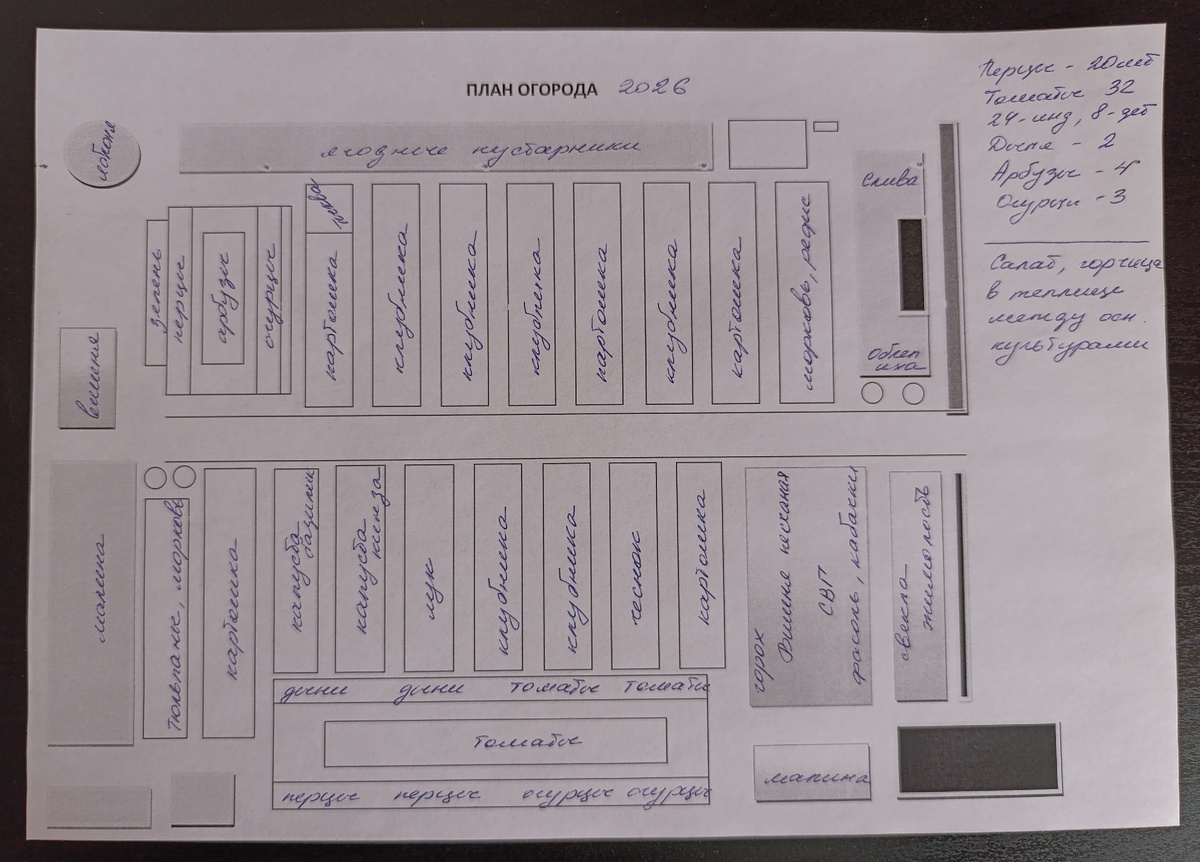 ПЛАН ОГОРОДА 2026
Перцы - 20шт
Томаты 32
24-инд, 8-дет
Дыня - 2
Арбузы - 4
Огурцы - 3
Салат, горчица
в теплице
между осн.
культурами
яблоня
ягодные кустарники
зелень
перцы
арбузы
огурцы
картошка
клубника
клубника
клубника
картошка
клубника
картошка
морковь, редис
слива
Облеп
иха
вишня
малина
Тюльпаны, морковь
картошка
капуста
базилик
капуста
кинза
лук
клубника
клубника
чеснок
картошка
горох
Вишня песчаная
СВГ
фасоль, кабачки
свекла
жимолость
дыни дыни томаты томаты
томаты
перцы перцы огурцы огурцы
малина